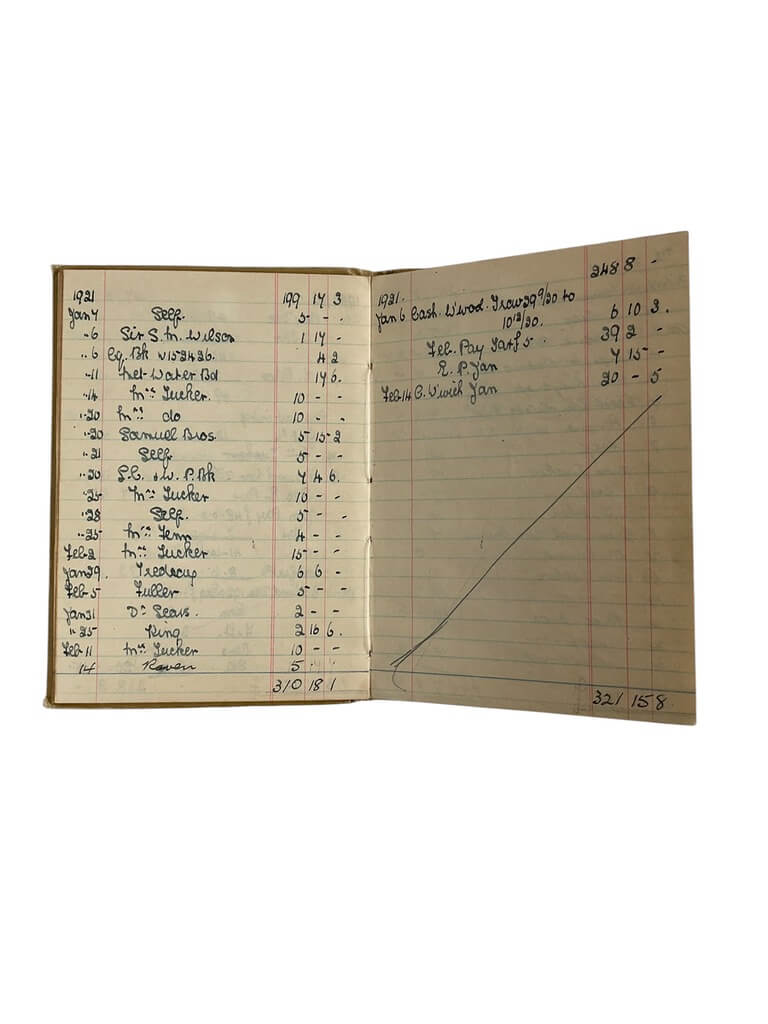 1921 199 17 3
Jan 7 Self. 5 - -
" 6 Sir S. M. Wilson 1 17 -
" 6 Cq. Bk V152426. 4 2
" 11 Met- Water Bd 17 6.
" 14 Mrs Tucker. 10 - -
" 20 Mrs do 10 - -
" 20 Samuel Bros. 5 15 2
" 21 Self 5 - -
" 20 L.C. & W. P. Bk 7 4 6.
" 25 Mrs Tucker 10 - -
" 28 Self. 5 - -
" 25 Mrs Fenn 4 - -
Feb 2 Mrs Tucker 15 - -
Jan 29. 6 6 -
Feb 5 Fuller 5 - -
Jan 31 Dr Sears. 2 - -
" 25 King 2 16 6.
Feb 11 Mrs Tucker 10 - -
14 Raven 5
310 18 1
248 8 -
1921.
Jan 6 Cash. W'wood. 29 9/20 to
10 12/20. 6 10 3.
Feb. Pay 39 2 -
E. P. Jan 7 15 -
Feb 14 C. W'wich Jan 20 - 5
321 15 8.